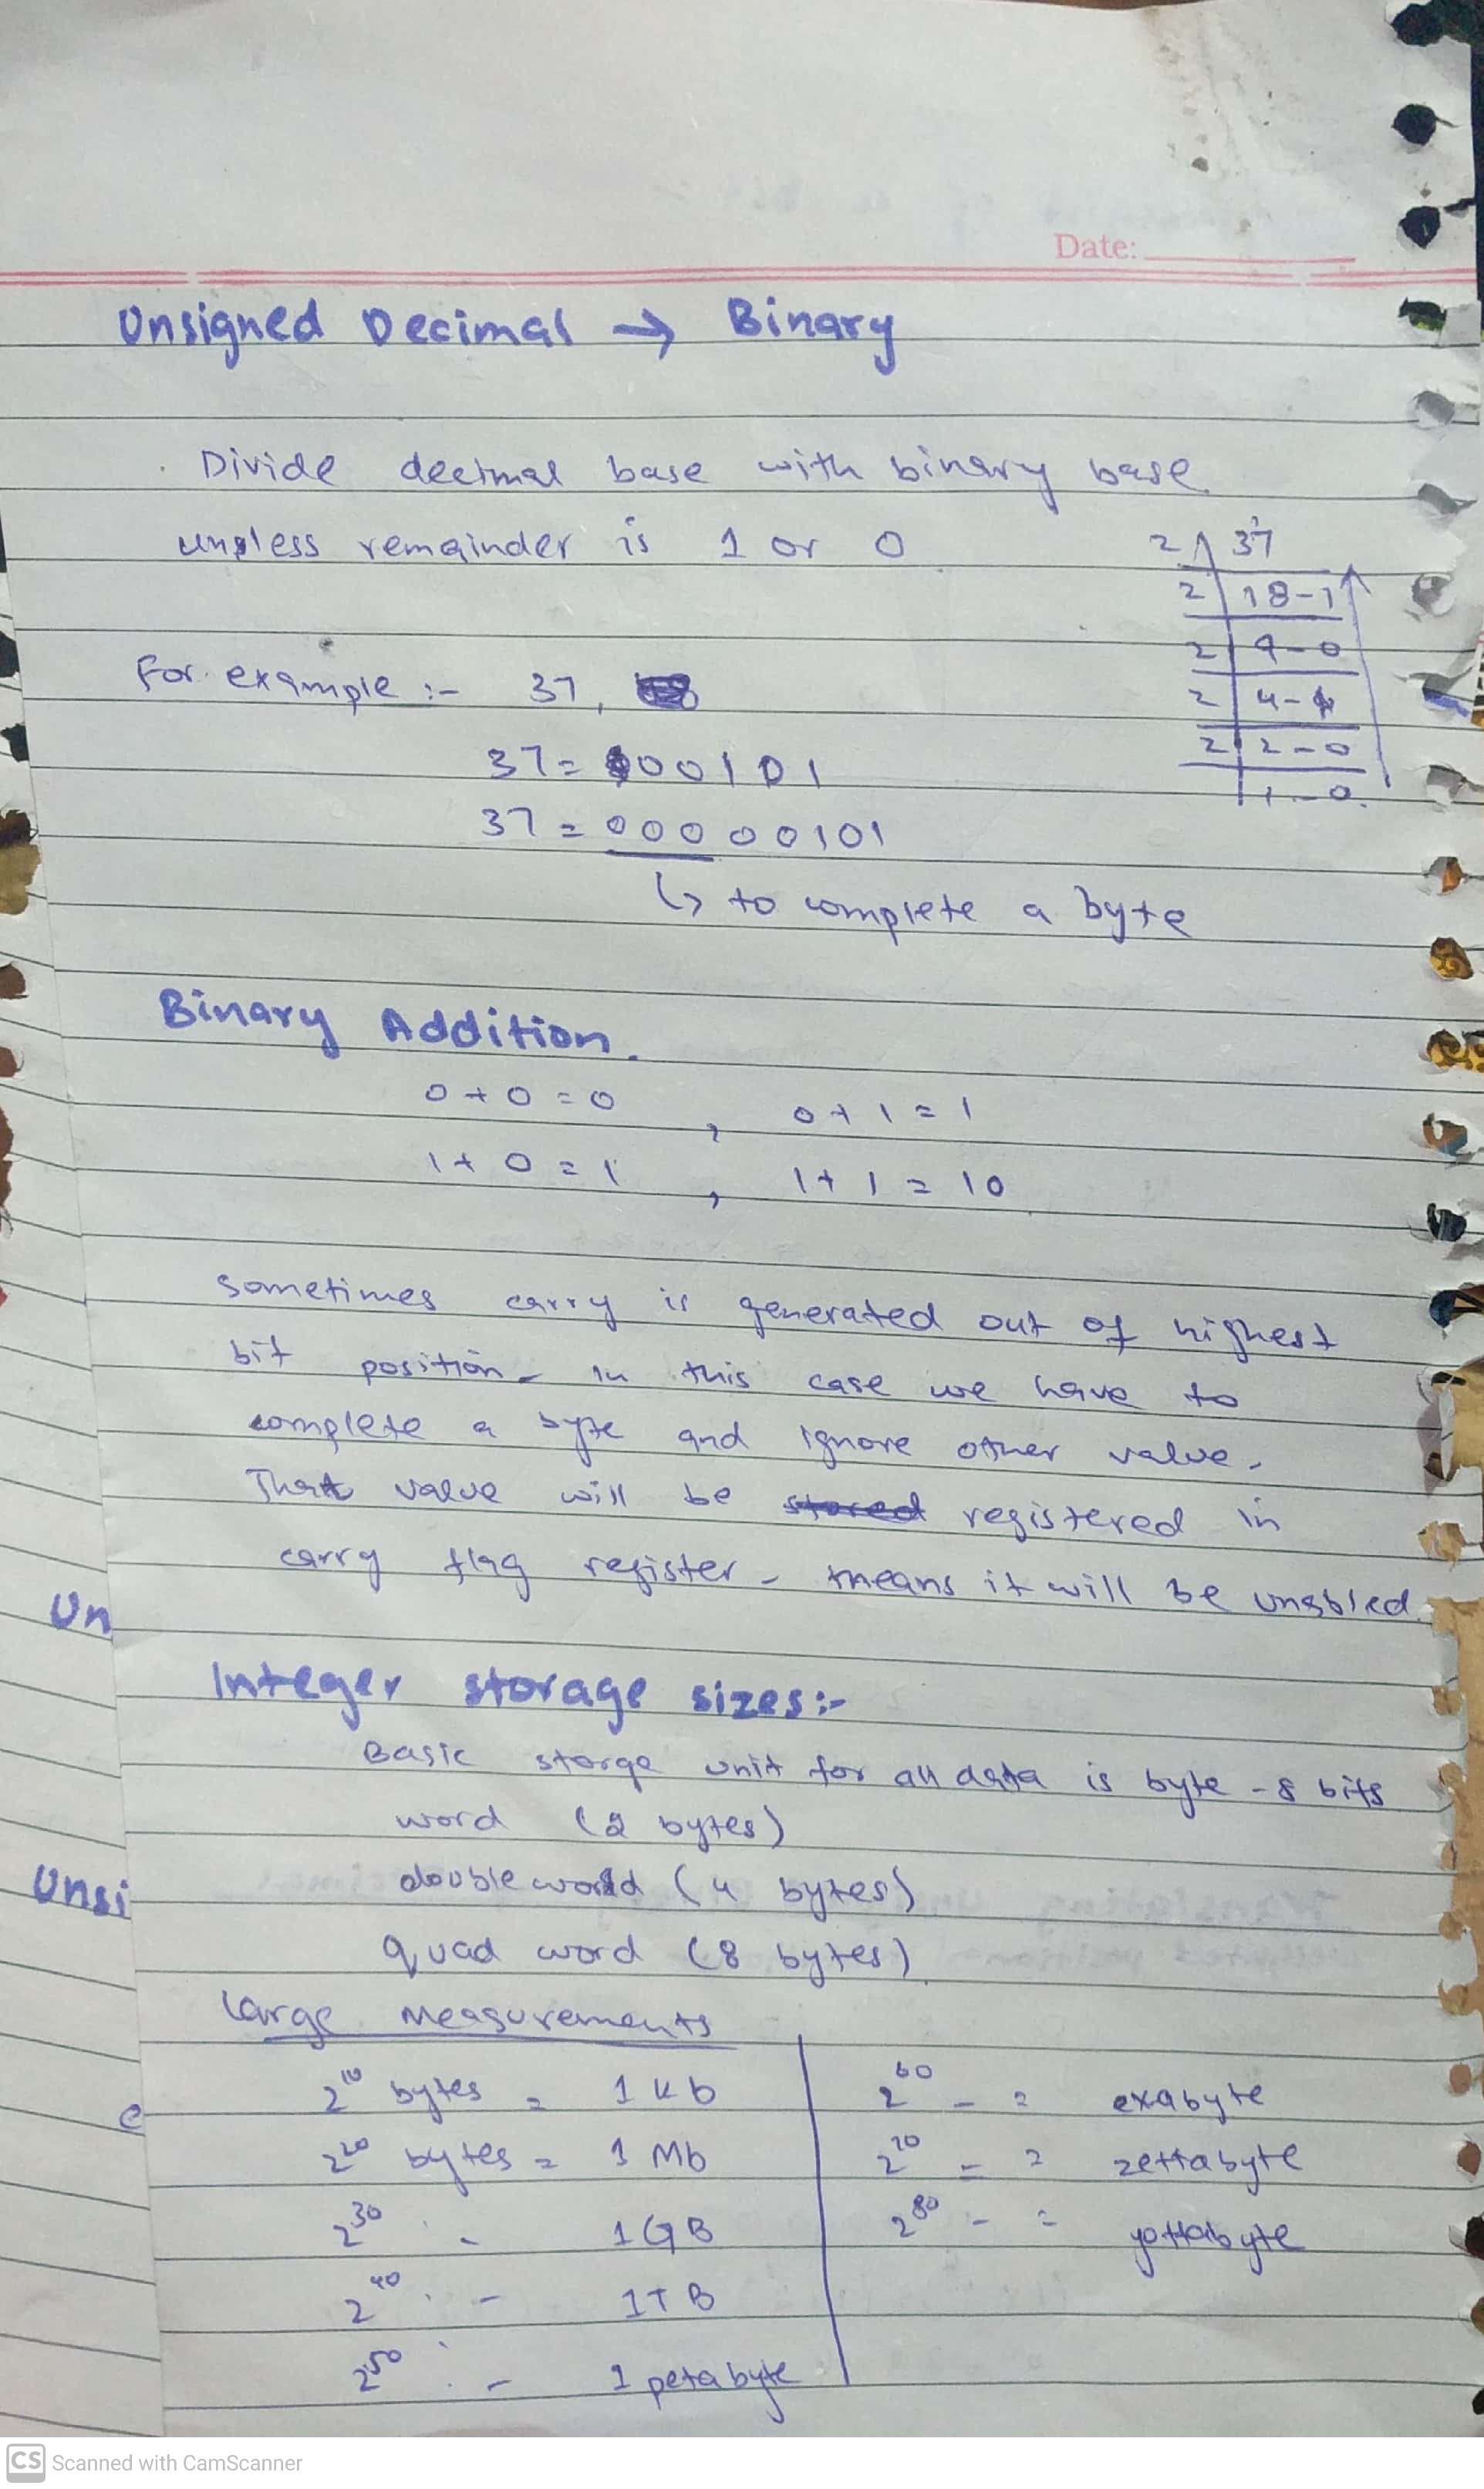 Date:
Unsigned Decimal → Binary
Divide decimal base with binary base
unless remainder is 1 or 0
2 37
2 18-1
2 9-0
2 4-1
2 2-0
1-0
For example :- 37,
37 = 100101
37 = 00000101
↳ to complete a byte
Binary Addition.
0+0=0 , 0+1=1
1+0=1 , 1+1=10
sometimes carry is generated out of highest
bit position. In this case we have to
complete a byte and ignore other value.
That value will be stored registered in
carry flag register - means it will be unabled.
Un
Integer storage sizes:-
Basic storge unit for all data is byte - 8 bits
word (2 bytes)
Unsi
double word (4 bytes)
quad word (8 bytes)
Large Measurements
2^10 bytes = 1 kb
2^20 bytes = 1 Mb
2^30 - 1GB
2^40 - 1TB
2^50 - 1 petabyte
2^60 - = exabyte
2^70 - = zettabyte
2^80 - = yottabyte
e
CS Scanned with CamScanner